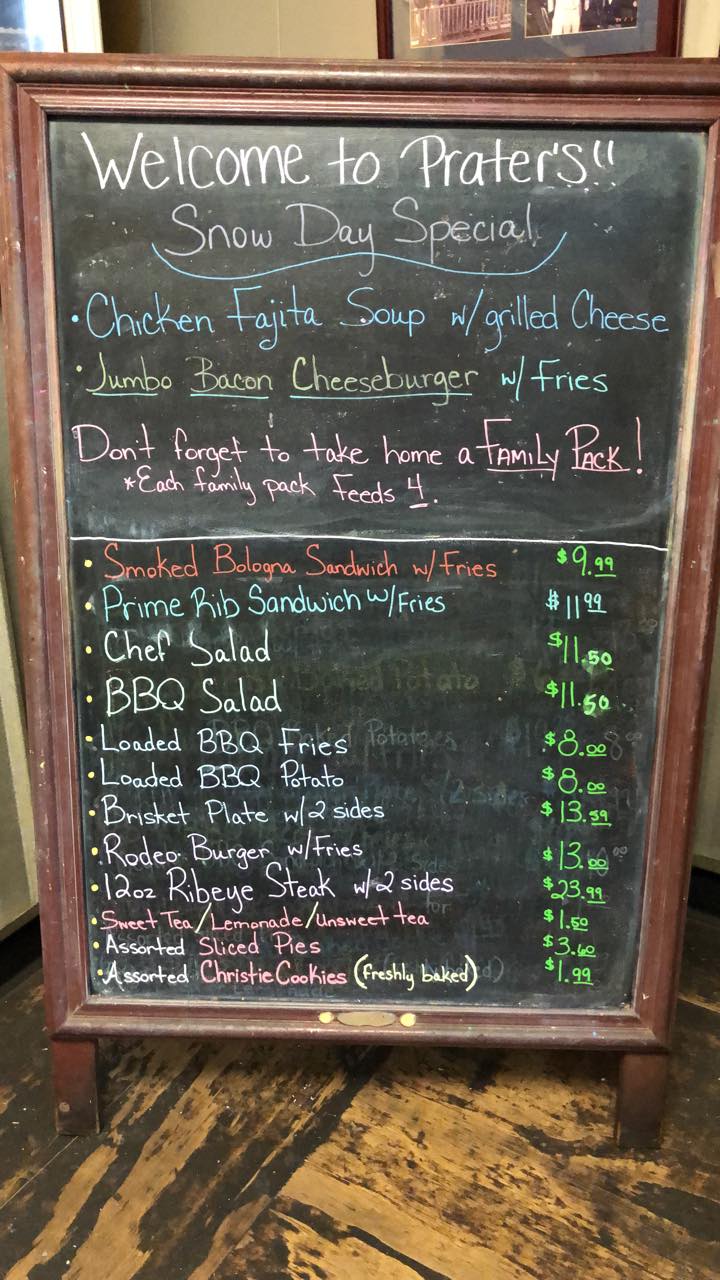 Welcome to Prater's!!
Snow Day Special
• Chicken Fajita Soup w/grilled Cheese
• Jumbo Bacon Cheeseburger w/ Fries
Don't forget to take home a Family Pack!
*Each family pack Feeds 4.
• Smoked Bologna Sandwich w/Fries $9.99
• Prime Rib Sandwich w/Fries $11 99
• Chef Salad $11.50
• BBQ Salad $11.50
• Loaded BBQ Fries $8.00
• Loaded BBQ Potato $8.00
• Brisket Plate w/2 sides $13.59
• Rodeo Burger w/Fries $13.00
• 12oz Ribeye Steak w/2 sides $23.99
• Sweet Tea/Lemonade/Unsweet tea $1.50
• Assorted Sliced Pies $3.60
• Assorted Christie Cookies (freshly baked) $1.99